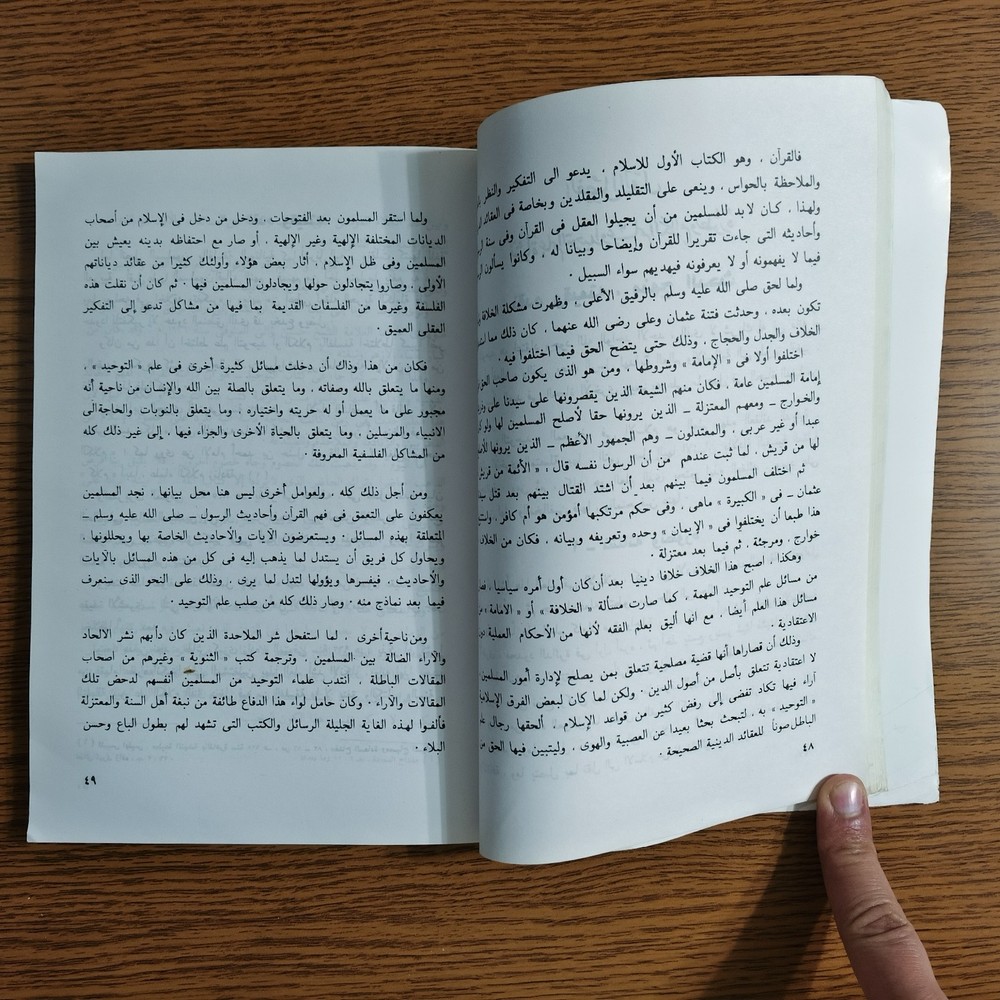 فالقرآن ، وهو الكتاب الأول للاسلام ، يدعو الى التفكير والنظر
والملاحظة بالحواس ، وينعى على التقليلد والمقلدين وبخاصة فى العقائد
ولهذا ، كان لابد للمسلمين من أن يجيلوا العقل فى القرآن وفى سنة
وأحاديثه التى جاءت تقريرا للقرآن وإيضاحا وبيانا له ، وكانوا يسألون
فيما لا يفهمونه أو لا يعرفونه فيهديهم سواء السبيل .
ولما لحق صلى الله عليه وسلم بالرفيق الأعلى ، وظهرت مشكلة الخلافة
تكون بعده ، وحدثت فتنة عثمان وعلى رضى الله عنهما ، كان ذلك مما
الخلاف والجدل والحجاج . وذلك حتى يتضح الحق فيما اختلفوا فيه .
اختلفوا أولا فى « الإمامة » وشروطها ، ومن هو الذى يكون صاحب
إمامة المسلمين عامة . فكان منهم الشيعة الذين يقصرونها على سيدنا على
والخوارج ــ ومعهم المعتزلة ــ الذين يرونها حقا لأصلح المسلمين لها ولو
عبدا أو غير عربى ، والمعتدلون ــ وهم الجمهور الأعظم ــ الذين يرونها
لها من قريش ، لما ثبت عندهم من أن الرسول نفسه قال ، « الأئمة من قريش
ثم اختلف المسلمون فيما بينهم بعد أن اشتد القتال بينهم بعد قتل
عثمان ــ فى « الكبيرة » ماهى ، وفى حكم مرتكبها أمؤمن هو أم كافر ،
هذا طبعا أن يختلفوا فى « الإيمان » وحده وتعريفه وبيانه ، فكان من
خوارج ، ومرجئة ، ثم فيما بعد معتزلة .
وهكذا ، اصبح هذا الخلاف خلافا دينيا بعد أن كان أول أمره سياسيا ،
من مسائل علم التوحيد المهمة ، كما صارت مسألة « الخلافة » أو « الامامة »
مسائل هذا العلم أيضا ، مع انها أليق بعلم الفقه لأنها من الأحكام العملية
الاعتقادية .
وذلك أن قصاراها أنها قضية مصلحية تتعلق بمن يصلح لإدارة أمور المسلمين
لا اعتقادية تتعلق بأصل من أصول الدين . ولكن لما كان لبعض الفرق
آراء فيها تكاد تفضى إلى رفض كثير من قواعد الإسلام ، ألحقها رجال
« التوحيد » به ، لتبحث بحثا بعيدا عن العصبية والهوى ، وليتبين فيها الحق من
الباطل صونا للعقائد الدينية الصحيحة .
٤٨
ولما استقر المسلمون بعد الفتوحات ، ودخل من دخل فى الإسلام من أصحاب
الديانات المختلفة الإلهية وغير الإلهية ، أو صار مع احتفاظه بدينه يعيش بين
المسلمين وفى ظل الإسلام ، أثار بعض هؤلاء وأولئك كثيرا من عقائد دياناتهم
الأولى ، وصاروا يتجادلون حولها ويجادلون المسلمين فيها . ثم كان أن نقلت هذه
الفلسفة وغيرها من الفلسفات القديمة بما فيها من مشاكل تدعو إلى التفكير
العقلى العميق .
فكان من هذا وذاك أن دخلت مسائل كثيرة أخرى فى علم « التوحيد » ،
ومنها ما يتعلق بالله وصفاته ، وما يتعلق بالصلة بين الله والإنسان من ناحية أنه
مجبور على ما يعمل أو له حريته واختياره ، وما يتعلق بالنوبات والحاجة الى
الانبياء والمرسلين ، وما يتعلق بالحياة الأخرى والجزاء فيها ، إلى غير ذلك كله
من المشاكل الفلسفية المعروفة .
ومن أجل ذلك كله ، ولعوامل أخرى ليس هنا محل بيانها ، نجد المسلمين
يعكفون على التعمق فى فهم القرآن وأحاديث الرسول ــ صلى الله عليه وسلم ــ
المتعلقة بهذه المسائل . ويستعرضون الآيات والأحاديث الخاصة بها ويحللونها ،
ويحاول كل فريق أن يستدل لما يذهب إليه فى كل من هذه المسائل بالآيات
والأحاديث ، فيفسرها ويؤولها لتدل لما يرى . وذلك على النحو الذى سنعرف
فيما بعد نماذج منه . وصار ذلك كله من صلب علم التوحيد .
ومن ناحية أخرى ، لما استفحل شر الملاحدة الذين كان دأبهم نشر الالحاد
والآراء الضالة بين المسلمين ، وترجمة كتب « الثنوية » وغيرهم من اصحاب
المقالات الباطلة ، انتدب علماء التوحيد من المسلمين أنفسهم لدحض تلك
المقالات والآراء . وكان حامل لواء هذا الدفاع طائفة من نبغة أهل السنة والمعتزلة
فألفوا لهذه الغاية الجليلة الرسائل والكتب التى تشهد لهم بطول الباع وحسن
البلاء .
٤٩